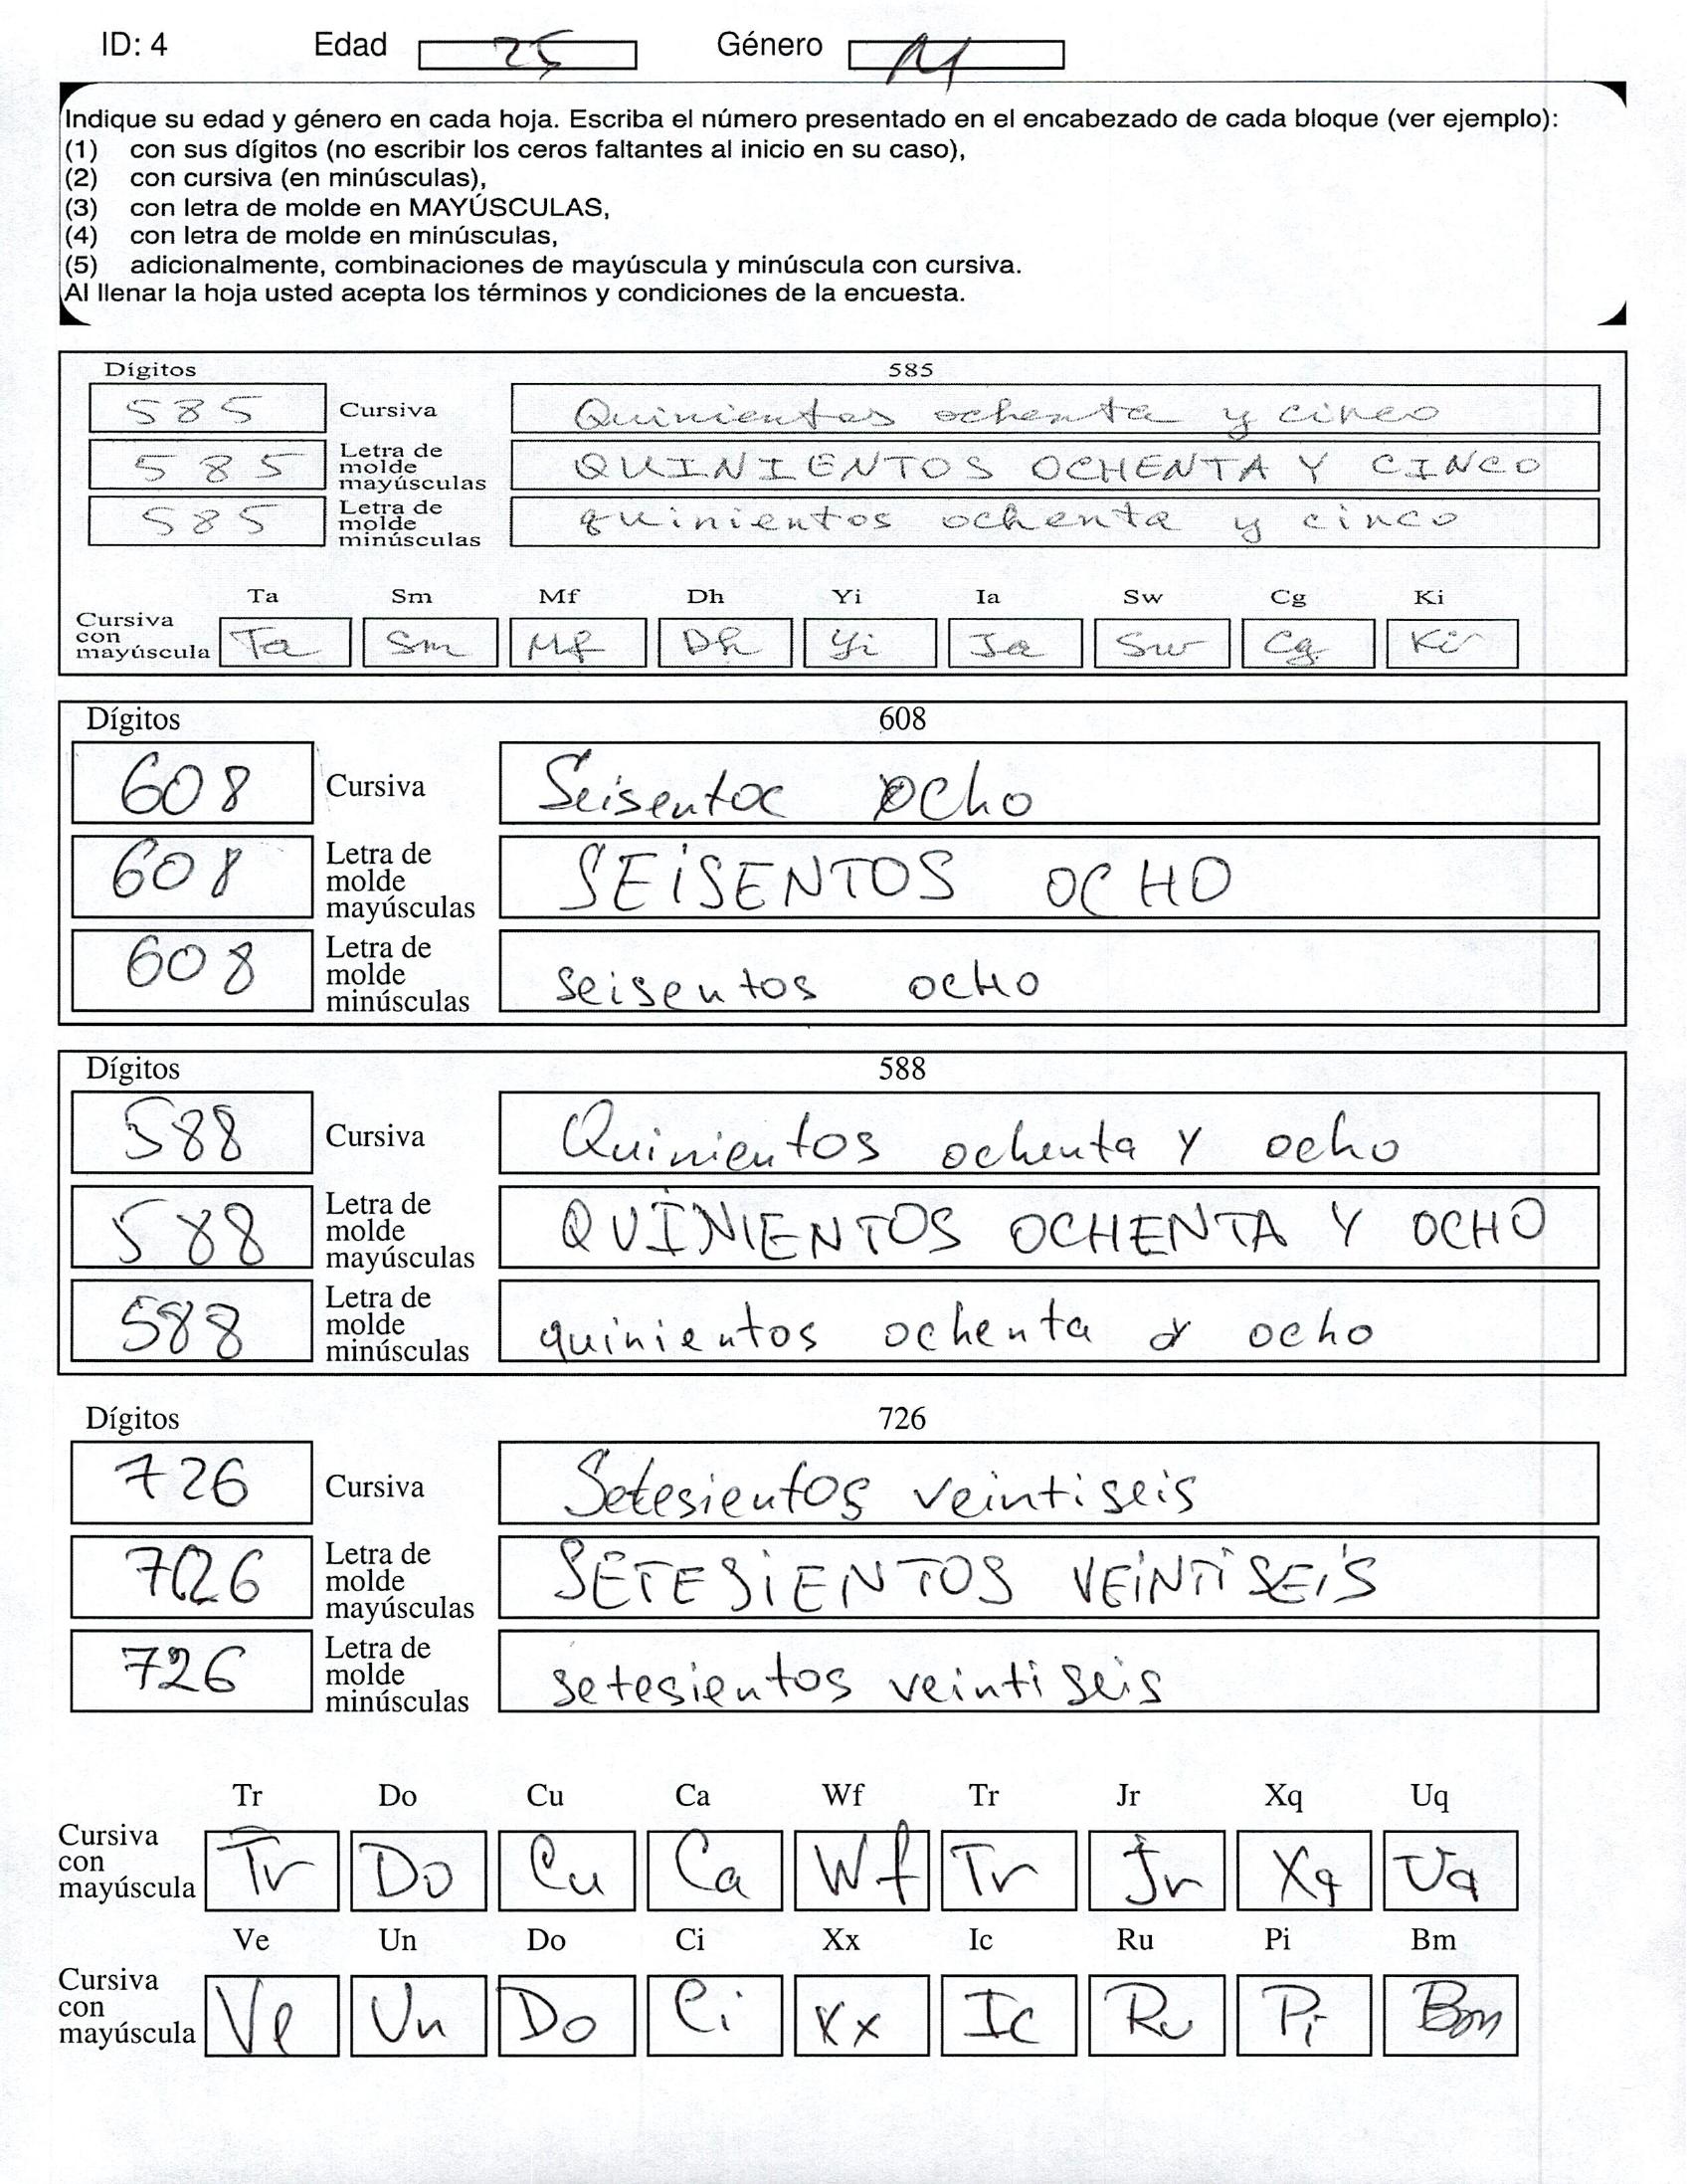 ID: 4 Edad 25 Género M
Indique su edad y género en cada hoja. Escriba el número presentado en el encabezado de cada bloque (ver ejemplo):
(1) con sus dígitos (no escribir los ceros faltantes al inicio en su caso),
(2) con cursiva (en minúsculas),
(3) con letra de molde en MAYÚSCULAS,
(4) con letra de molde en minúsculas,
(5) adicionalmente, combinaciones de mayúscula y minúscula con cursiva.
Al llenar la hoja usted acepta los términos y condiciones de la encuesta.
Dígitos 585
585 Cursiva Quinientos ochenta y cinco
585 Letra de molde mayúsculas QUINIENTOS OCHENTA Y CINCO
585 Letra de molde minúsculas quinientos ochenta y cinco
Ta Sm Mf Dh Yi Ia Sw Cg Ki
Cursiva con mayúscula Ta Sm Mf Dh Yi Ia Sw Cg Ki
Dígitos 608
608 Cursiva Seisentoc ocho
608 Letra de molde mayúsculas SEiSENTOS OCHO
608 Letra de molde minúsculas seisentos ocHo
Dígitos 588
588 Cursiva Quinientos ochenta y ocho
588 Letra de molde mayúsculas QUINIENTOS OCHENTA Y OCHO
588 Letra de molde minúsculas quinientos ochenta y ocho
Dígitos 726
726 Cursiva Setesientos veintiseis
726 Letra de molde mayúsculas SETESiENTOS VEiNTiSEiS
726 Letra de molde minúsculas setesientos veintiseis
Tr Do Cu Ca Wf Tr Jr Xq Uq
Cursiva con mayúscula Tr Do Cu Ca Wf Tr Jr Xq Uq
Ve Un Do Ci Xx Ic Ru Pi Bm
Cursiva con mayúscula Ve Un Do Ci Xx Ic Ru Pi Bm